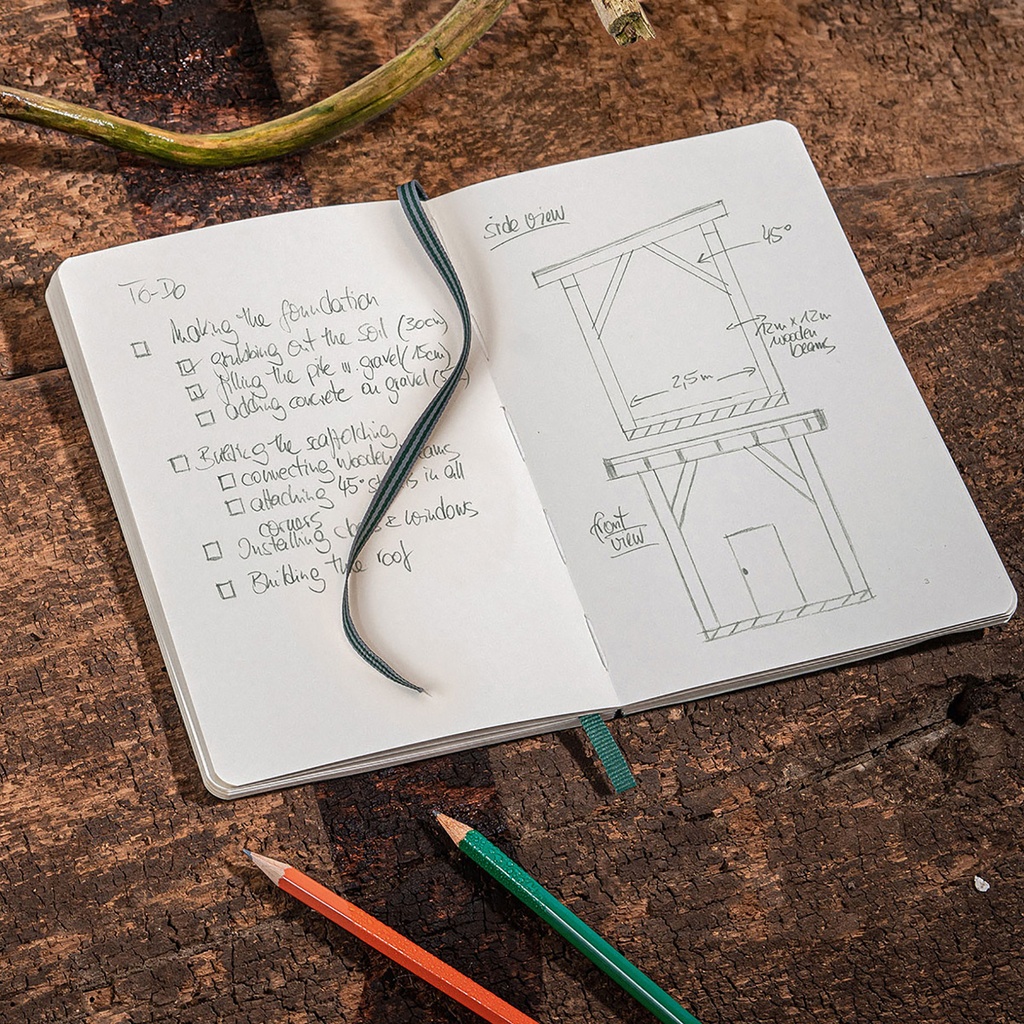 To-Do
Making the foundation
grubbing out the soil (30cm)
filling the pile w. gravel (15cm)
adding concrete on gravel (
Building the scaffolding
connecting wooden beams
attaching 45° in all
corners
Installing & windows
Building the roof
side view
45°
12m x 12m
wooden
beams
2,5m
front
view